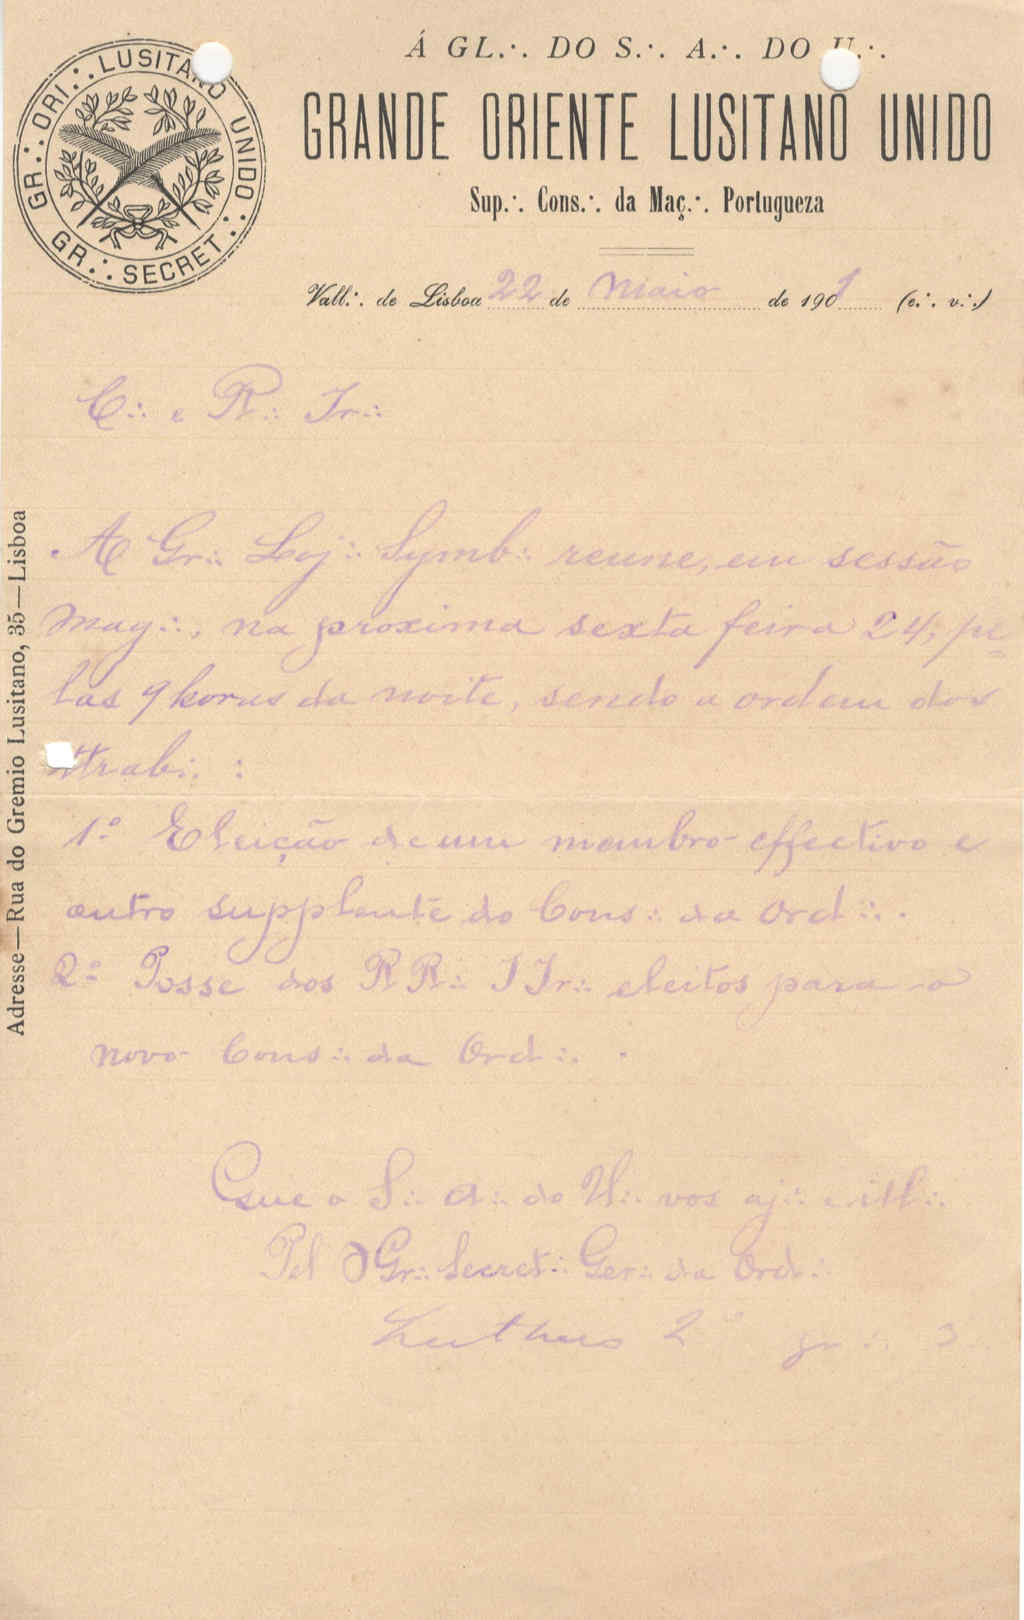 GR∴ ORI∴ LUSITANO UNIDO∴
GR∴ SECRET∴
Á GL∴ DO S∴ A∴ DO U∴
GRANDE ORIENTE LUSITANO UNIDO
Sup∴ Cons∴ da Maç∴ Portugueza
Vall∴ de Lisboa 22 de Maio de 1901 (e∴ v∴)
C∴ e R∴ Ir∴
A Gr∴ Loj∴ Symb∴ reune, em sessão
mag∴, na proxima sexta feira 24, pe=
las 9 horas da noite, sendo a ordem dos
trab∴ :
1º Eleição de um membro effectivo e
outro supplente do Cons∴ da Ord∴.
2º Posse dos RR∴ IIr∴ eleitos para o
novo Cons∴ da Ord∴.
Que o S∴ A∴ do U∴ vos aj∴ e ill∴
Pel O Gr∴ Secret∴ Ger∴ da Ord∴
Luthero 2º gr∴ 3
Adresse—Rua do Gremio Lusitano, 35—Lisboa